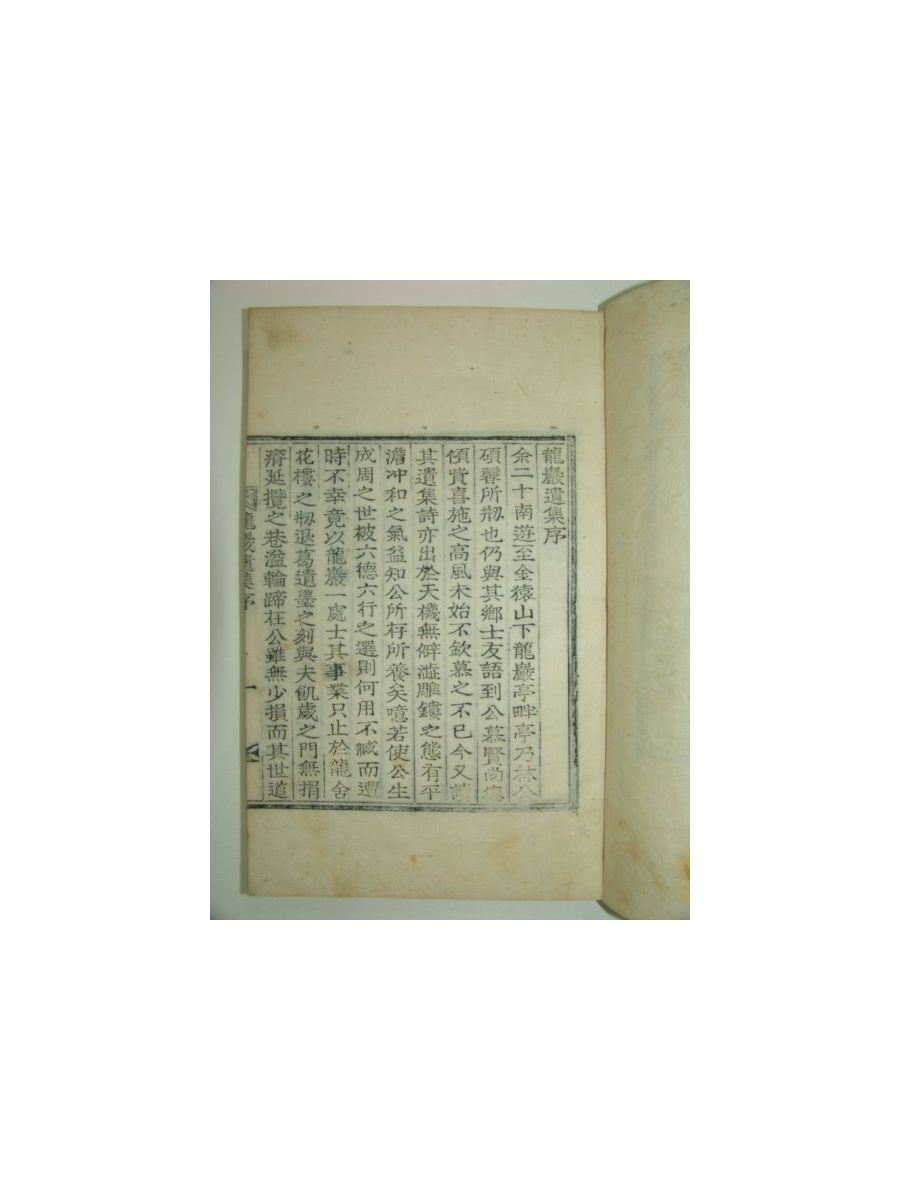 龍巖遺集序
余二十南遊至金猿山下龍巖亭畔亭乃林公
碩馨所刱也仍與其鄉士友語到公慕賢尚
傾貲喜施之高風未始不欽慕之不已今又讀
其遺集詩亦出於天機無僻澁雕鏤之態有平
澹冲和之氣益知公所存所養矣噫若使公生
成周之世被六德六行之選則何用不臧而遭
時不幸竟以龍巖一處士其事業只止於龍舍
花樓之刱退葛遺墨之刻與夫飢歲之門無捐
瘠延攬之巷溢輪蹄在公雖無少損而其世道
龍巖遺集序 一